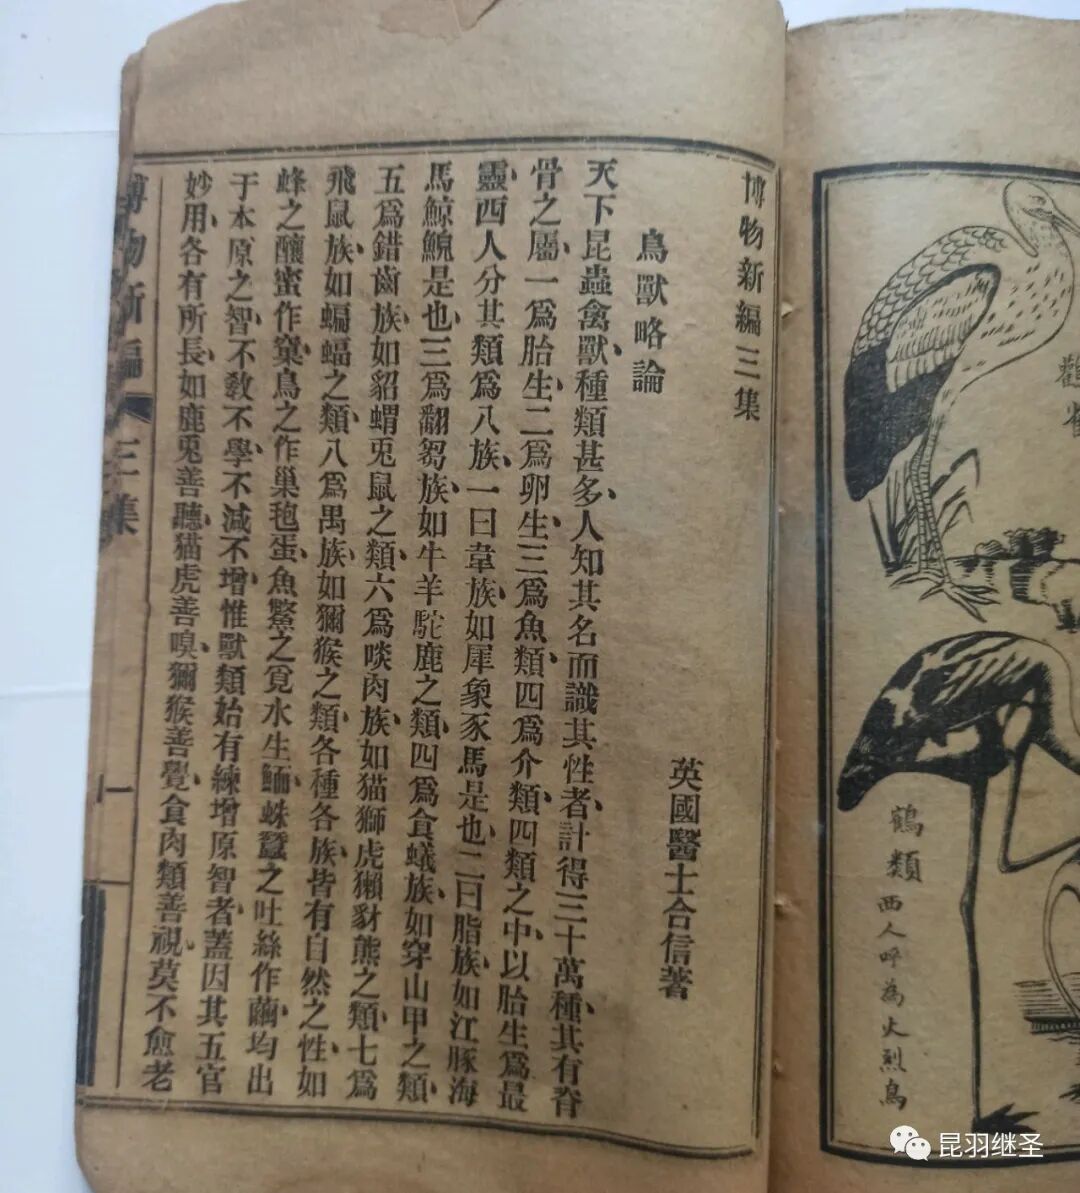 博物新編三集
鳥獸略論
英國醫士合信著
天下昆蟲禽獸、種類甚多、人知其名而識其性者、計得三十萬種、其有脊
骨之屬、一爲胎生、二爲卵生、三爲魚類、四爲介類、四類之中、以胎生爲最
靈、西人分其類爲八族、一曰韋族、如犀象豕馬是也、二曰脂族、如江豚海
馬鯨鯢是也、三爲翻芻族、如牛羊駝鹿之類、四爲食蟻族、如穿山甲之類、
五爲錯齒族、如貂蝟兎鼠之類、六爲啖肉族、如猫獅虎獺豺熊之類、七爲
飛鼠族、如蝙蝠之類、八爲禺族、如獼猴之類、各種各族、皆有自然之性、如
蜂之釀蜜作窠、鳥之作巢菢蛋、魚鱉之覓水生𩽾、蛛蠶之吐絲作繭、均出
于本原之智、不敎不學、不減不增、惟獸類始有練增原智者、蓋因其五官
妙用、各有所長、如鹿兎善聽、猫虎善嗅、獼猴善覺、食肉類善視、莫不愈老
博物新編
三集
一
鸛雀
鶴類
西人呼為火烈鳥
昆羽继圣